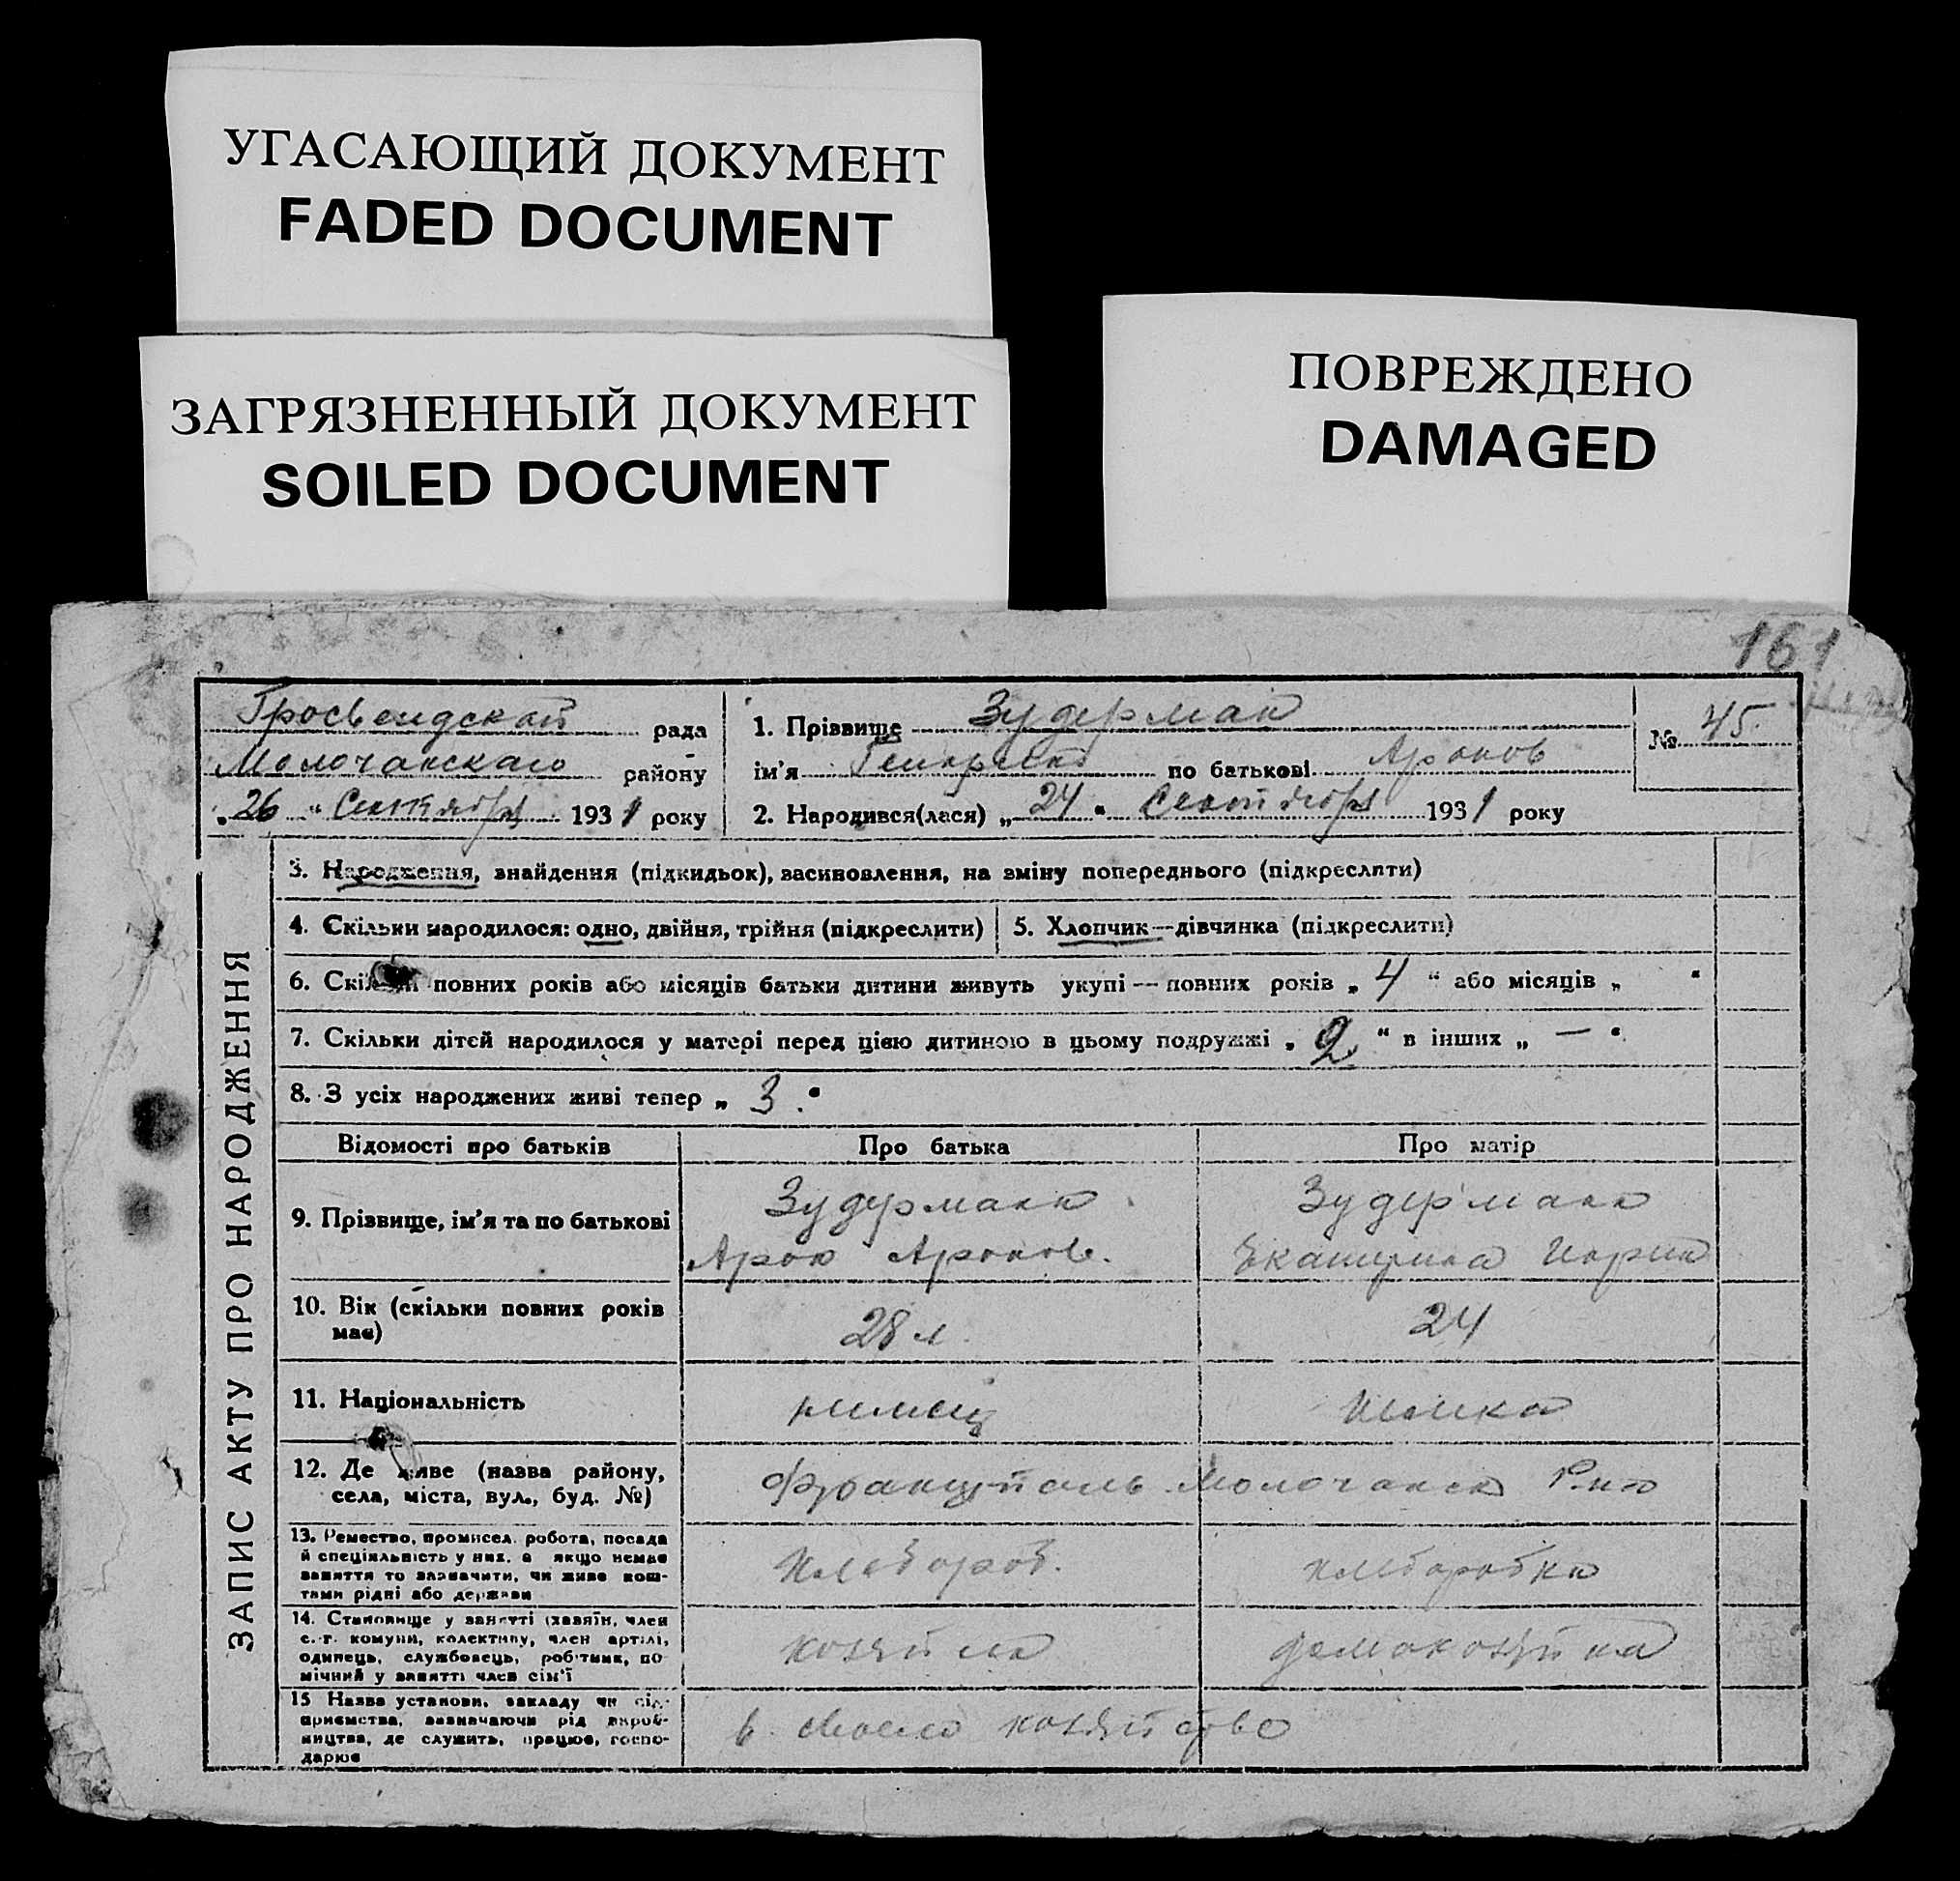 УГАСАЮЩИЙ ДОКУМЕНТ
FADED DOCUMENT
ЗАГРЯЗНЕННЫЙ ДОКУМЕНТ
SOILED DOCUMENT
ПОВРЕЖДЕНО
DAMAGED
161
ЗАПИС АКТУ ПРО НАРОДЖЕННЯ
рада
Молочанскаго району
„26“ Сентября 1931 року
1. Прізвище Зудерман
ім'я Генрих по батькові Аронов
2. Народився(лася) „24“ Сентября 1931 року
№ 45.
3. Народження, знайдення (підкидьок), васиновлення, на зміну попереднього (підкреслити)
4. Скільки народилося: одно, двійня, трійня (підкреслити)
5. Хлопчик—дівчинка (підкреслити)
6. Скільки повних років або місяців батьки дитини живуть укупі — повних років „4“ або місяців „ “
7. Скільки дітей народилося у матері перед цією дитиною в цьому подружжі „2“ в інших „—“
8. З усіх народжених живі тепер „3.“
Відомості про батьків Про батька Про матір
9. Прізвище, ім'я та по батькові
Зудерманн
Арон Аронов.
Зудерманн
Екатерина
10. Вік (скільки повних років
має)
28 л.
24
11. Національність
немец
немка
12. Де живе (назва району,
села, міста, вул., буд. №)
Францталь Молочанск Р-на
13. Ремество, промисел, робота, посада
й спеціяльність у них, а якщо немає
заняття то зазначити, чи живе кош-
тами рідні або держави
хлебороб.
хлеборобка
14. Становище у занятті (хазяїн, член
с.-г. комуни, колективу, член артілі,
одинець, службовець, роб'тник, по-
мічний у занятті член сім'ї
хозяйна
домохозяйка
15 Назва установи, закладу чи під-
приємства, зазначаючи рід вироб-
ництва, де служить, працює, госпо-
дарює
в своем хозяйстве